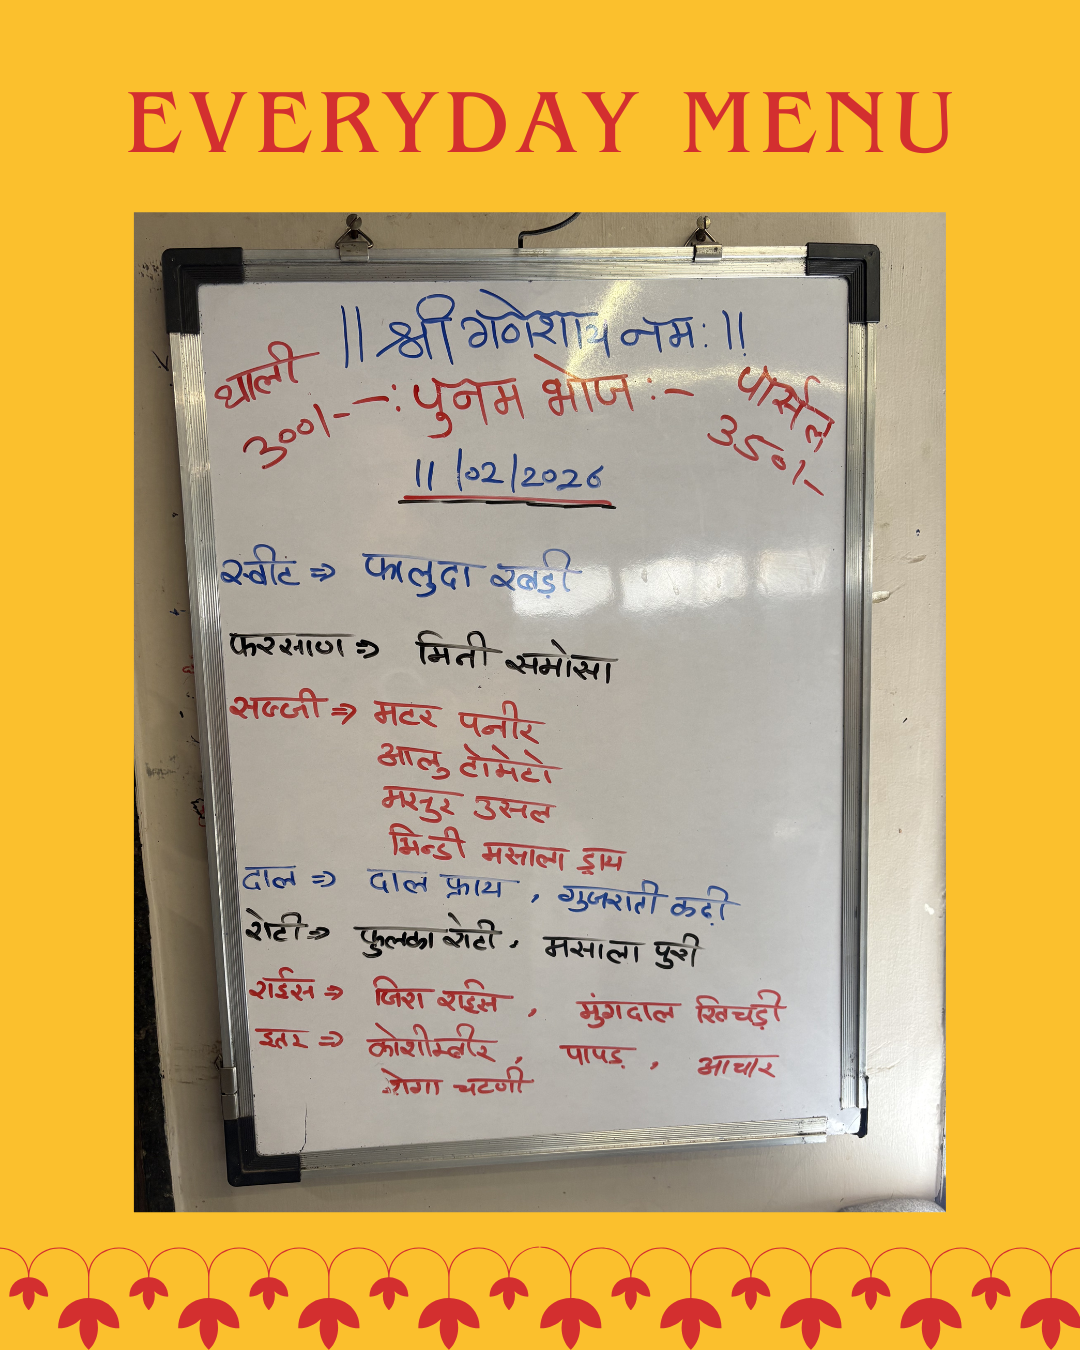 EVERYDAY MENU
|| श्री गणेशाय नमः ||
थाली
300/-
-: पुनम भोज :-
पार्सल
350/-
11/02/2026
स्वीट ⇒ फालुदा रबड़ी
फरसाण ⇒ मिनी समोसा
सब्जी ⇒ मटर पनीर
आलु टोमेटो
मसुर उसल
भिन्डी मसाला ड्राय
दाल ⇒ दाल फ्राय , गुजराती कढ़ी
रोटी ⇒ फुलका रोटी , मसाला पुरी
राईस ⇒ जिरा राईस , मुंगदाल खिचड़ी
इतर ⇒ कोशीम्बीर , पापड़ , आचार
शेगा चटणी